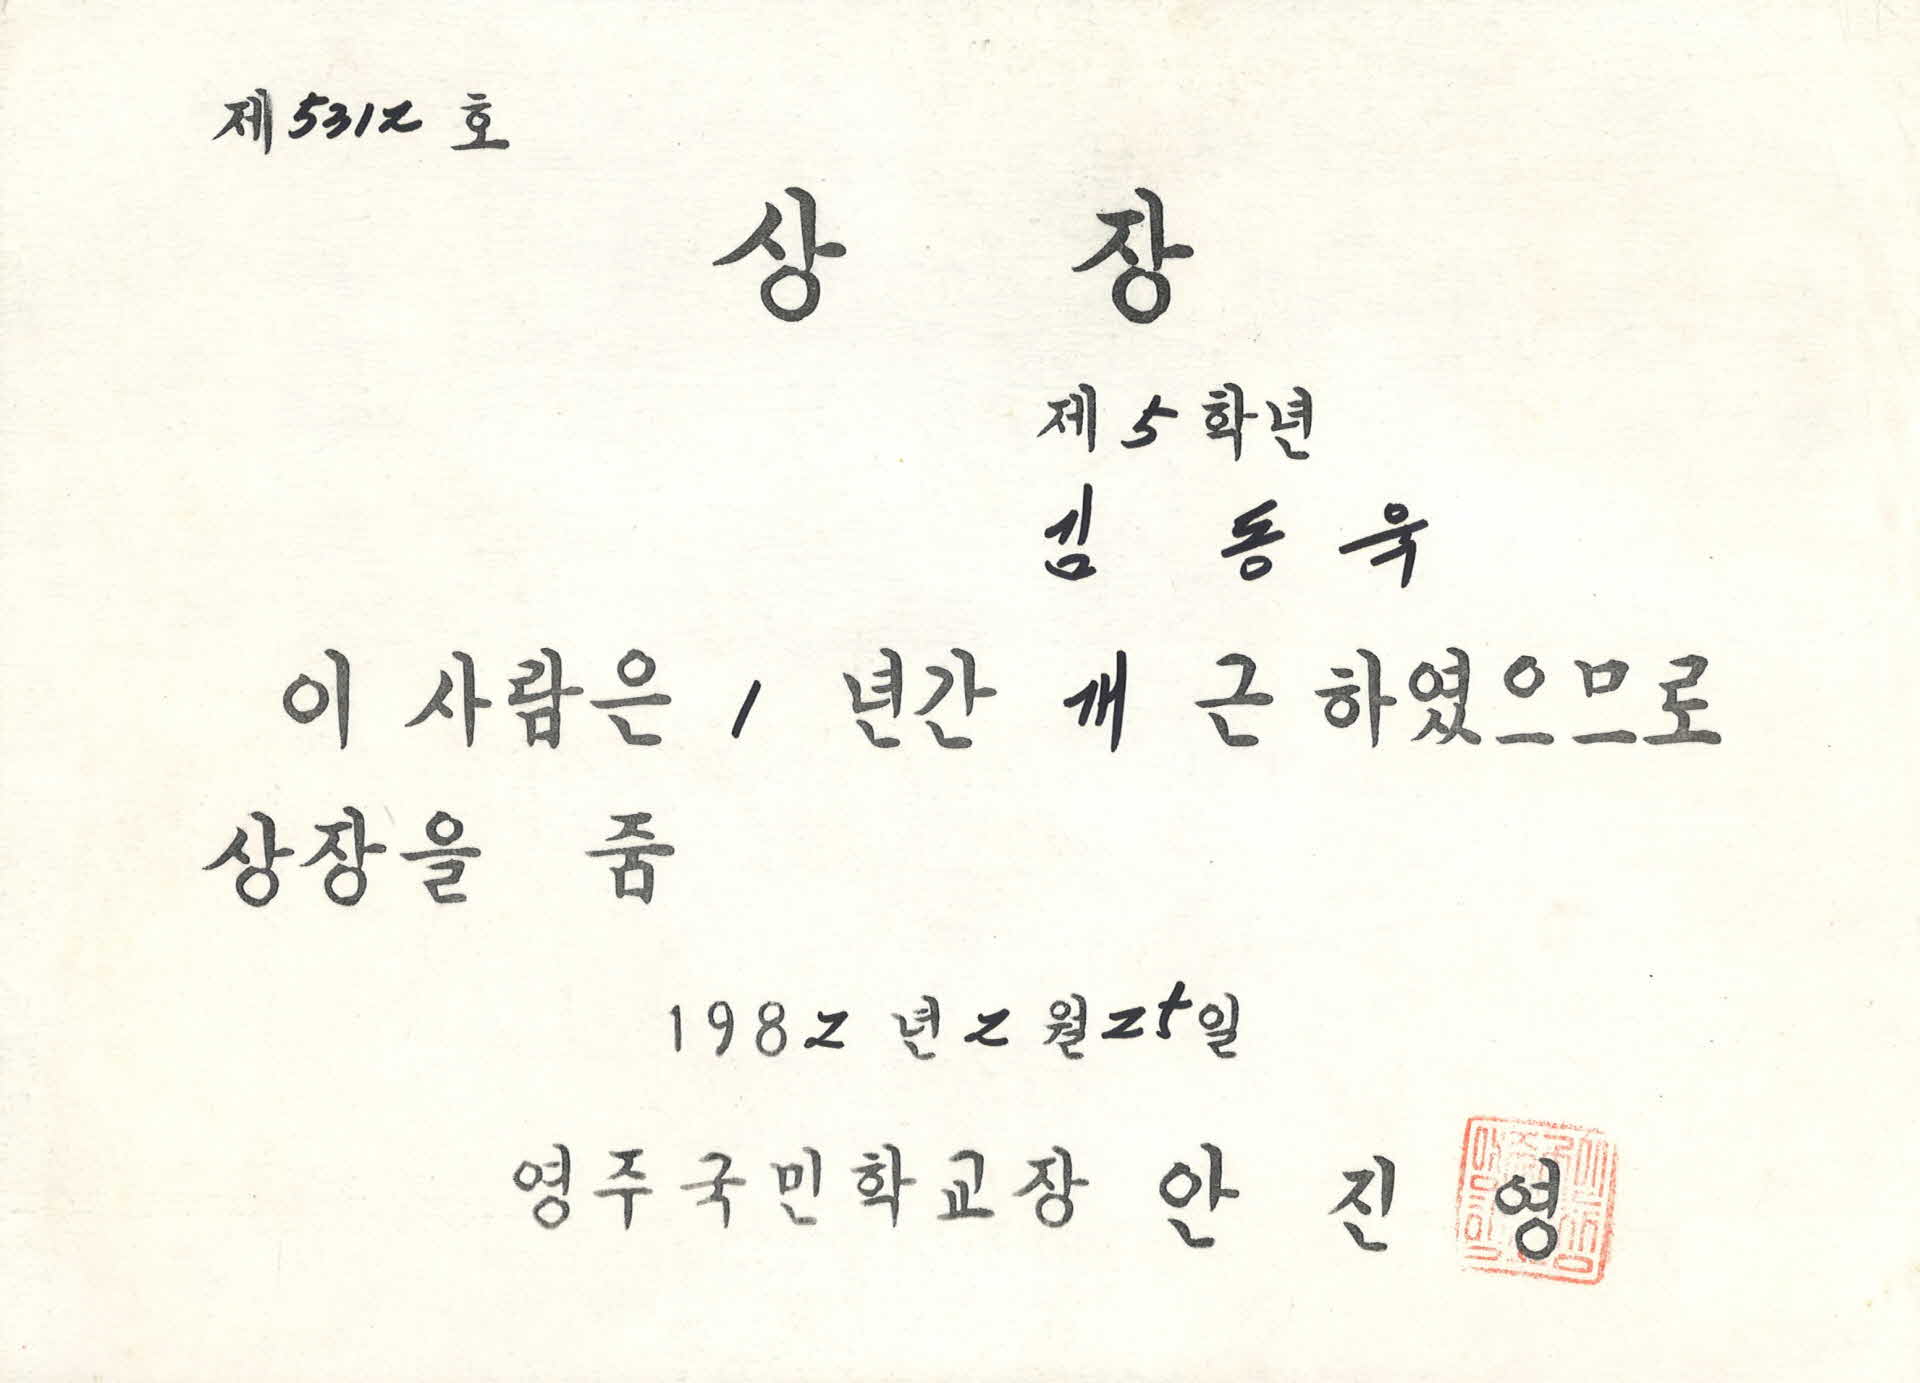 제 5312 호
상 장
제 5 학년
김 동 욱
이 사람은 1 년간 개 근 하였으므로
상장을 줌
1982 년 2 월 25일
영주국민학교장 안 진 영